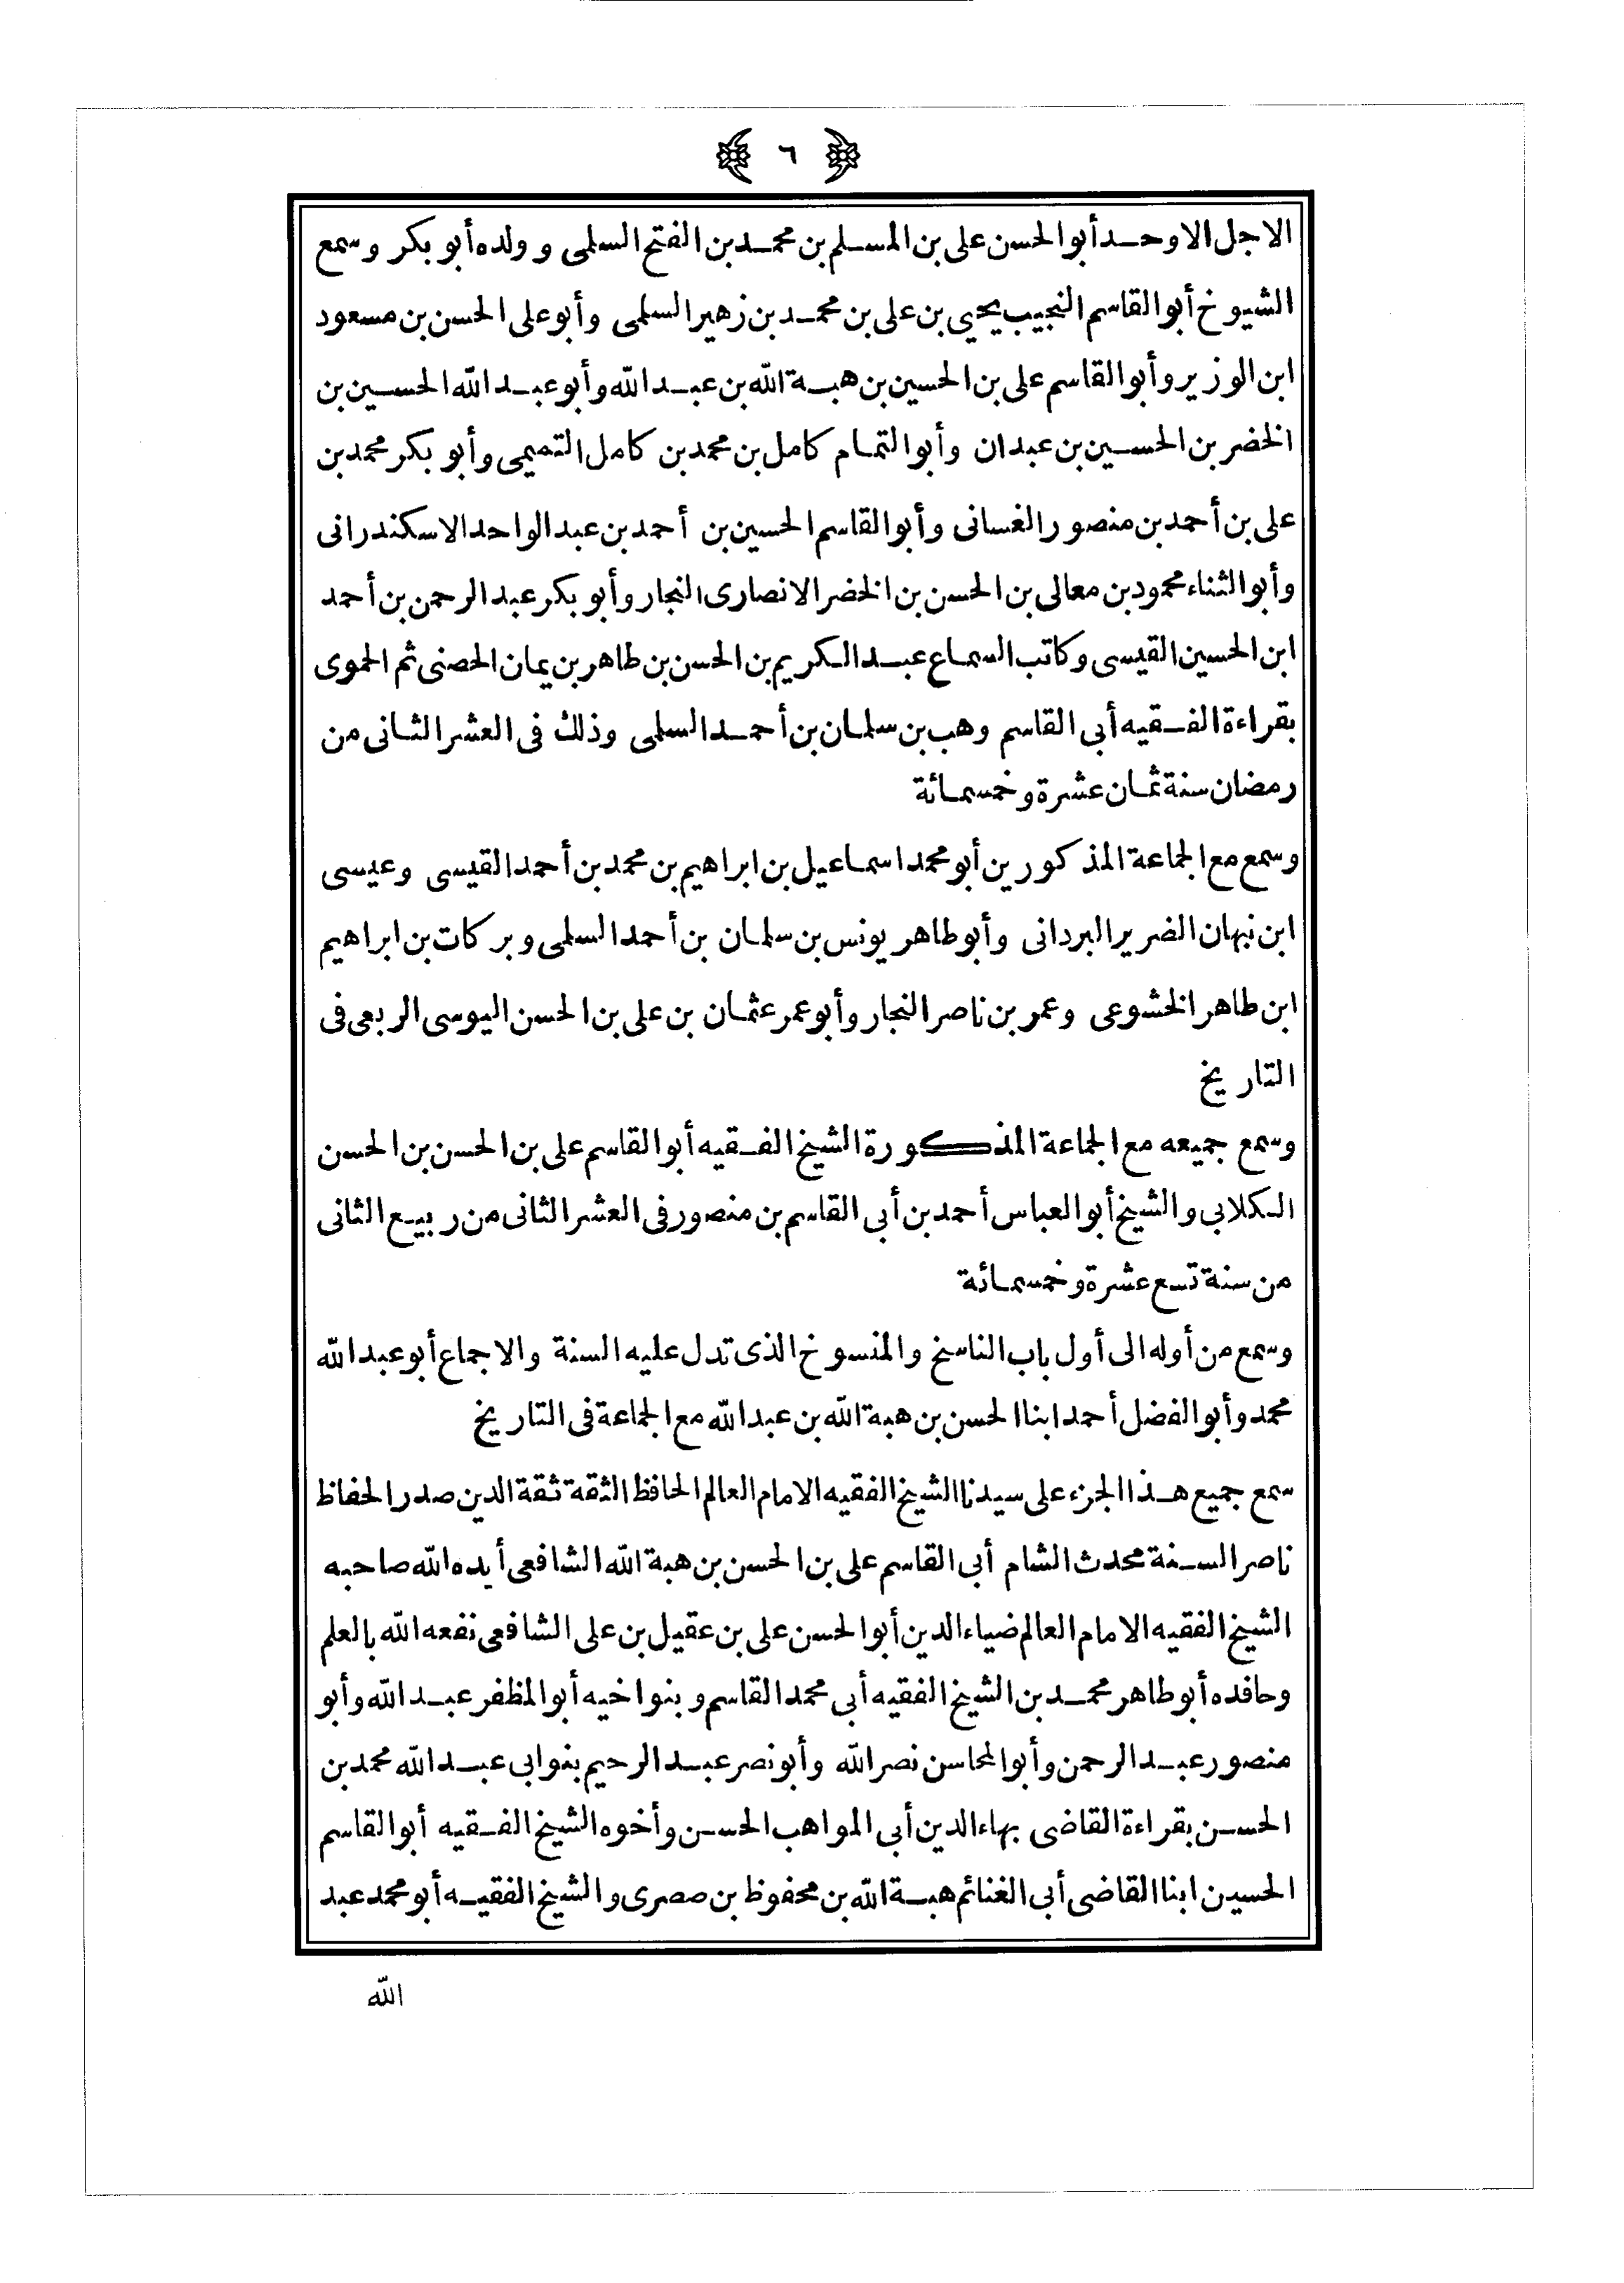 ﴿ ٦ ﴾
الاجل الاوحد أبو الحسن على بن المسلم بن محمد بن الفتح السلمى وولده أبو بكر وسمع
الشيوخ أبو القاسم النجيب يحيي بن على بن محمد بن زهير السلمى وأبو على الحسن بن مسعود
ابن الوزير وأبو القاسم على بن الحسين بن هبة الله بن عبد الله وأبو عبد الله الحسين بن
الخضر بن الحسين بن عبدان وأبو التمام كامل بن محمد بن كامل التميمى وأبو بكر محمد بن
على بن أحمد بن منصور الغسانى وأبو القاسم الحسين بن أحمد بن عبد الواحد الاسكندرانى
وأبو الثناء محمود بن معالى بن الحسن بن الخضر الانصارى النجار وأبو بكر عبد الرحمن بن أحمد
ابن الحسين القيسى وكاتب السماع عبد الكريم بن الحسن بن طاهر بن يمان الحصنى ثم الحموى
بقراءة الفقيه أبى القاسم وهب بن سلمان بن أحمد السلمى وذلك فى العشر الثانى من
رمضان سنة ثمان عشرة وخمسمائة
وسمع مع الجماعة المذكورين أبو محمد اسماعيل بن ابراهيم بن محمد بن أحمد القيسى وعيسى
ابن نبهان الضرير البردانى وأبو طاهر يونس بن سلمان بن أحمد السلمى وبركات بن ابراهيم
ابن طاهر الخشوعى وعمر بن ناصر النجار وأبو عمر عثمان بن على بن الحسن اليوسى الربعى فى
التاريخ
وسمع جميعه مع الجماعة المذكورة الشيخ الفقيه أبو القاسم على بن الحسن بن الحسن
الكلابي والشيخ أبو العباس أحمد بن أبى القاسم بن منصور فى العشر الثانى من ربيع الثانى
من سنة تسع عشرة وخمسمائة
وسمع من أوله الى أول باب الناسخ والمنسوخ الذى تدل عليه السنة والاجماع أبو عبد الله
محمد وأبو الفضل أحمد ابنا الحسن بن هبة الله بن عبد الله مع الجماعة فى التاريخ
سمع جميع هذا الجزء على سيدنا الشيخ الفقيه الامام العالم الحافظ الثقة ثقة الدين صدر الحفاظ
ناصر السنة محدث الشام أبى القاسم على بن الحسن بن هبة الله الشافعى أيده الله صاحبه
الشيخ الفقيه الامام العالم ضياء الدين أبو الحسن على بن عقيل بن على الشافعى نفعه الله بالعلم
وحافده أبو طاهر محمد بن الشيخ الفقيه أبى محمد القاسم وبنو اخيه أبو المظفر عبد الله وأبو
منصور عبد الرحمن وأبو المحاسن نصر الله وأبو نصر عبد الرحيم بنو ابى عبد الله محمد بن
الحسن بقراءة القاضى بهاء الدين أبى المواهب الحسن وأخوه الشيخ الفقيه أبو القاسم
الحسين ابنا القاضى أبى الغنائم هبة الله بن محفوظ بن صصرى والشيخ الفقيه أبو محمد عبد
الله